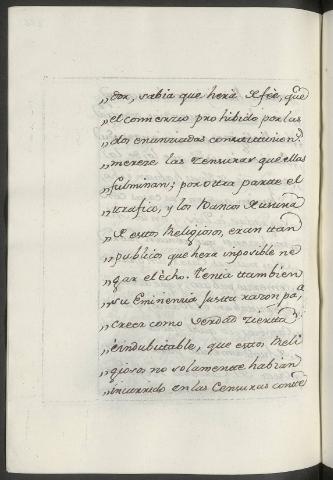 „dor, sabia que hera de fèe, que
„el comerzio prohibido por las
„dos enunziadas constituzion.s
„mereze las Zensuras que ellas
„fulminan; por otra parte el
„trafico, y los Bancos de usura
„de estos Religiosos, eran tan
„publicos que hera inposible ne
„gar el echo. Tenia tambien
„su Eminenzia justa razon pa.a
„creer como verdad zierta,
„è indubitable, que estos Reli
„giosos no solamente habian
„incurrido en las Censuras conte